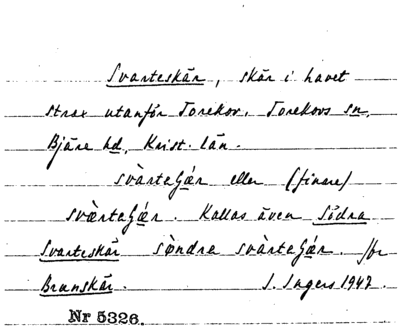 Svarteskär, skär i havet
strax utanför Torekov. Torekovs sn,
Bjäre hd, Krist. län.
svàrteʃǽr eller (finare)
svæ̀rteʃǽr. Kallas även Södra
Svarteskär sø̀ndra svàrteʃǽr. Jfr
Brunskär. I. Ingers 1947.
Nr 5326.